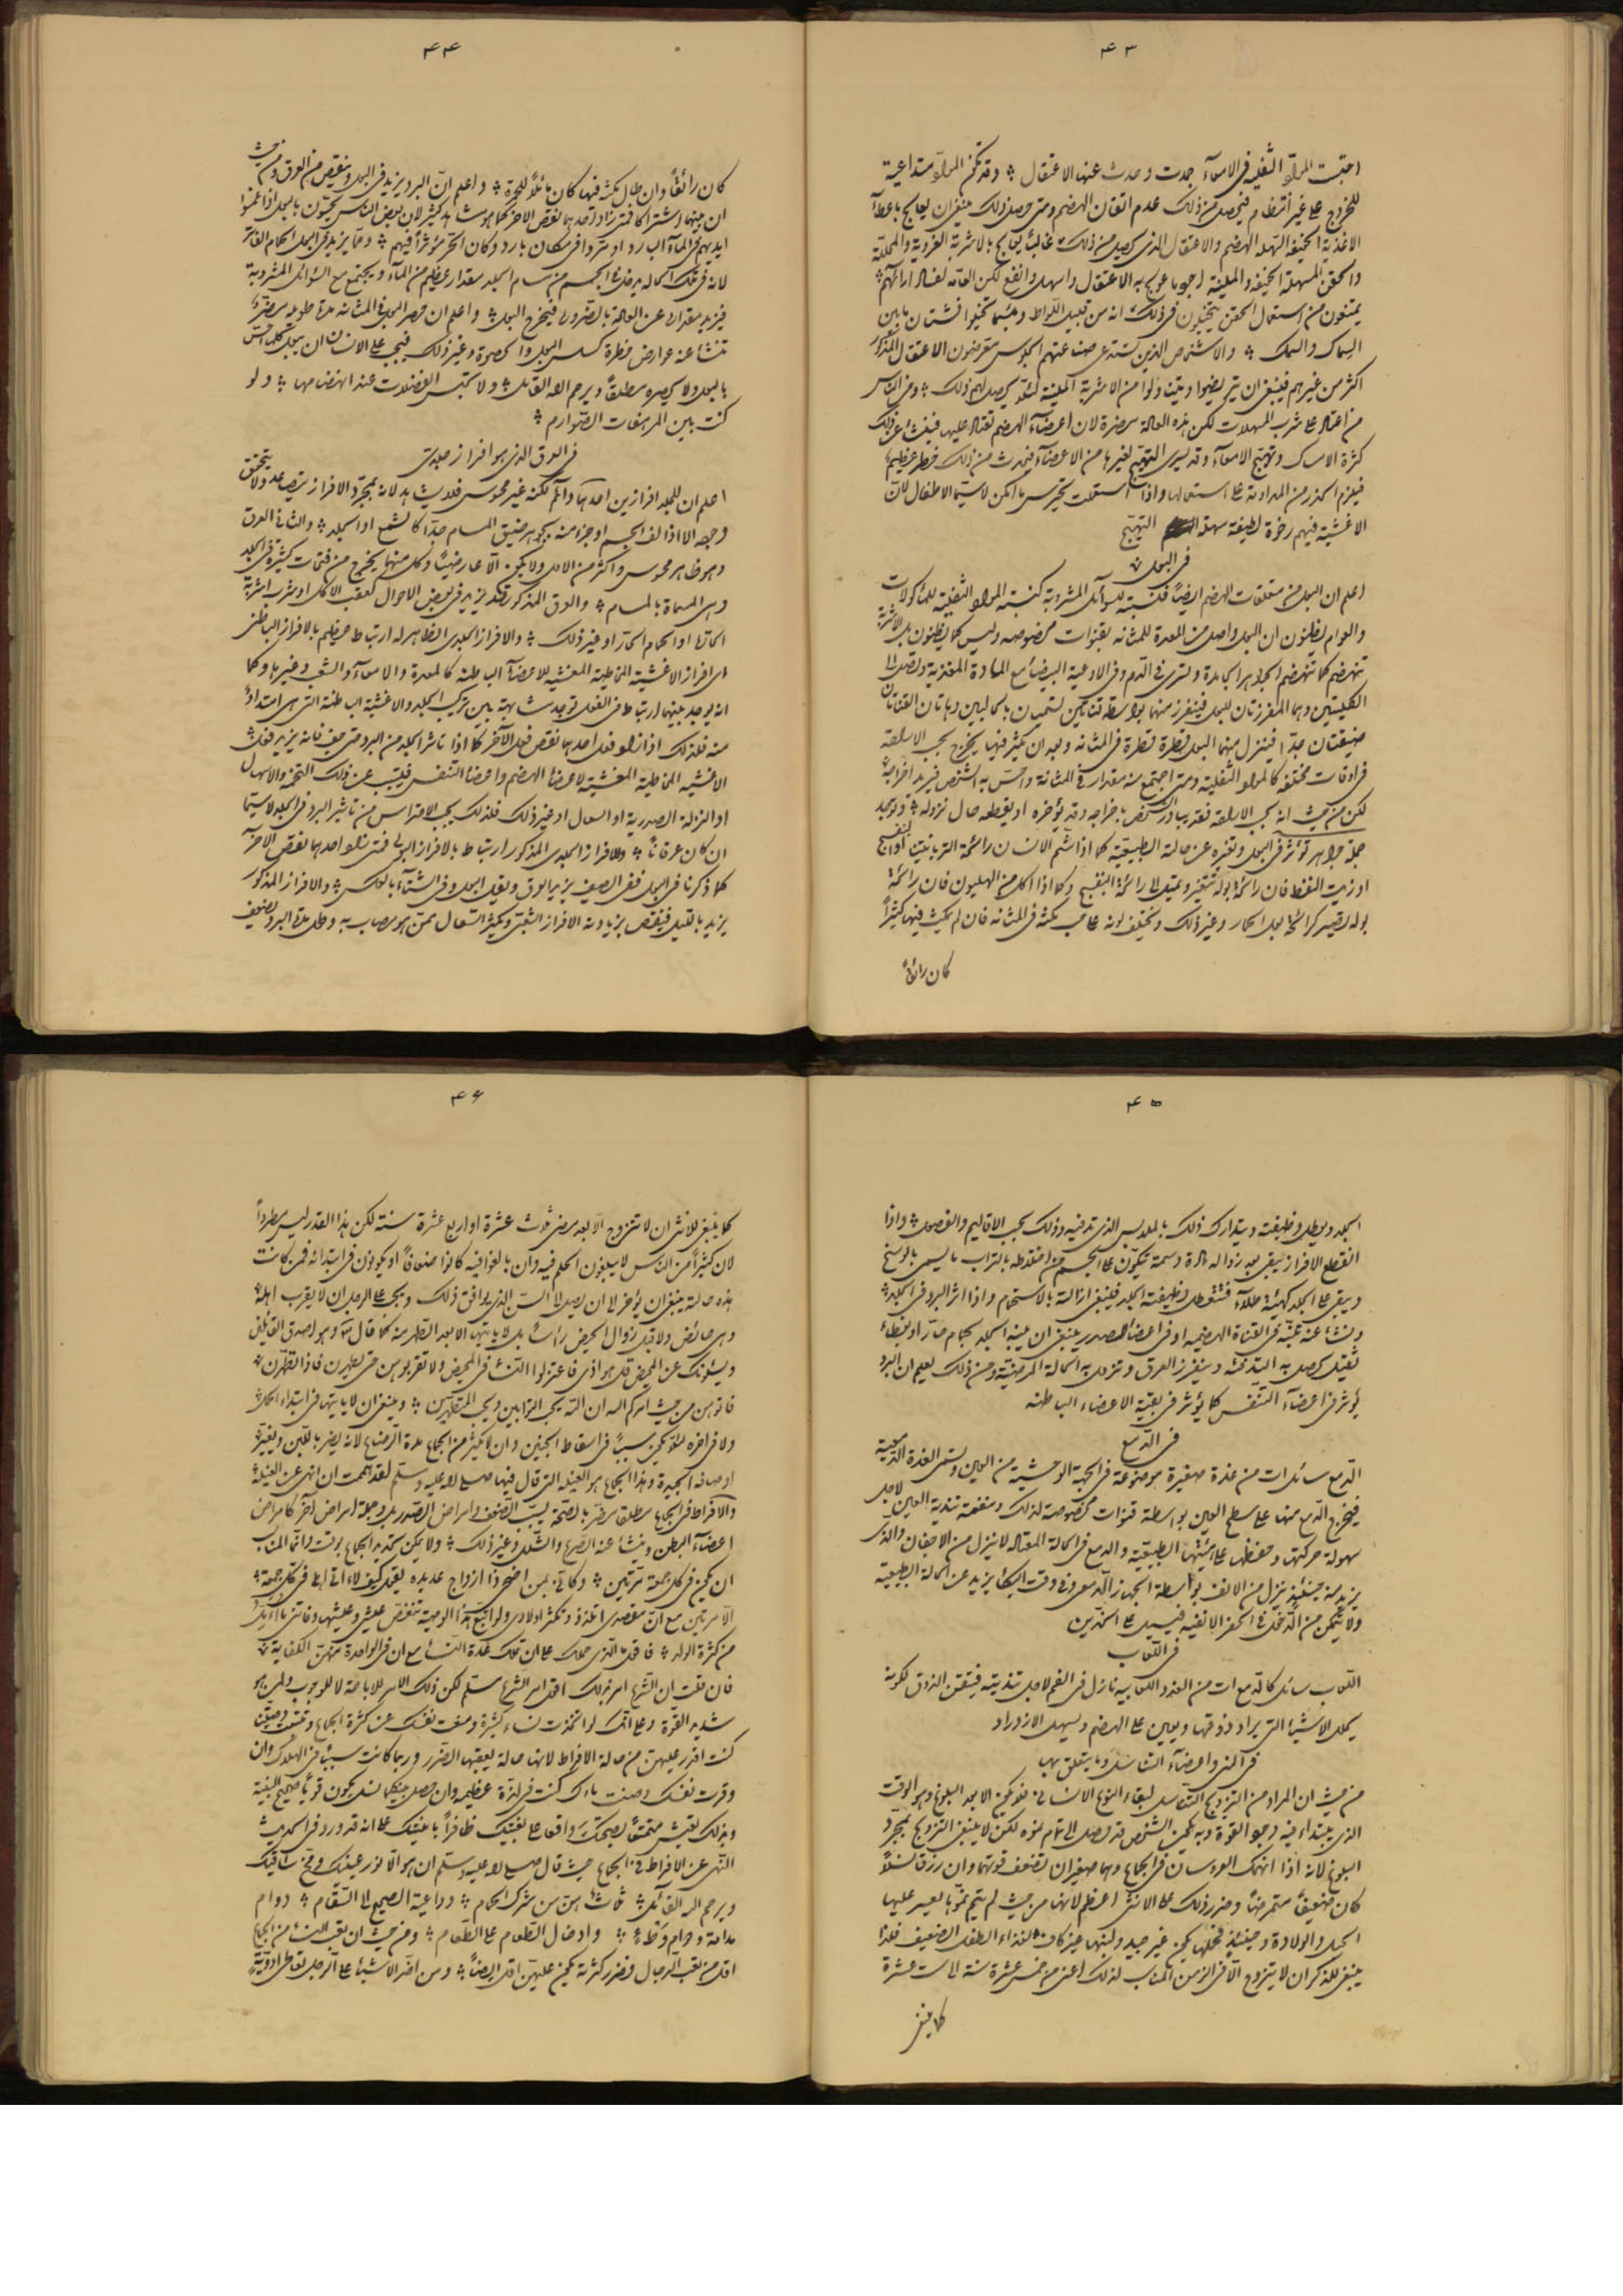 ۴۳
احتبست المواد الثفلية فى الامعاء جمدت وحدث عنها الاعتقال وقد تكن المواد متداعية
للخروج على غير انتظام فيحصل من ذلك عدم اتقان الهضم ومتى حصل ذلك ينبغى ان يعالج باعطاء
الاغذية الخفيفة السهلة الهضم والاعتقال الذى يحصل من ذلك غالبا يعالج بالاشربة الغروية والمحللة
والحقن المسهلة الخفيفة والملينة اجود ما عولج به الاعتقال واسهل وانفع لكن العامة لفساد ارائهم
يمتنعون من استعمال الحقن يتخيلون فى ذلك انه من قبيل اللواط وبئسما تخيلوا فشتان ما بين
السماك والسمك والاشخاص الذين تستدعى صناعتهم الجلوس متعرضون الاعتقال المذكور
اكثر من غيرهم فينبغى ان يتريضوا ويتناولوا من الاشربة الملينة لئلا يحصل لهم ذلك ومن الناس
من اعتاد على شرب المسهلات لكن هذه العادة مضرة لان اعضاء الهضم تعتاد عليها فينشأ عن ذلك
كثرة الامساك وتهيج الامعاء وقد يسرى التهيج لغيرها من الاعضاء فيحدث من ذلك خطر عظيم
فيلزم الحذر من المداومة على استعمالها واذا استعملت تحترس ما امكن لا سيما الاطفال لان
الاغشية فيهم رخوة لطيفة سهلة التهيج
فى البول
اعلم ان البول من متعلقات الهضم ايضا فنسبته للسوائل المشروبة كنسبة المواد الثفلية للمأكولات
والعوام يظنون ان البول واصل من المعدة للمثانه بقنوات مخصوصه وليس كما يظنون بل الاشربة
تنهضم كما تنهضم الجواهر الجامدة وتسرى فى الدم وفى الاوعية البيضاء مع المادة المغذية وتصل الى
الكليتين وهما المفرزتان للبول فينفرز منهما بواسطة قناتين تسميان بالحالبين وهاتان القناتان
ضيقتان جدا فينزل منهما البول قطرة قطرة فى المثانه وبعد ان يكثر فيها يخرج بحسب الارادة
فى اوقات مختلفه كالمواد الثفلية ومتى اجتمع منه مقدار فى المثانة واحس به الشخص فيريد اخراجه
لكن من حيث انه بحسب الارادة فقد يبادر الشخص باخراجه وقد يؤخره او يقطعه حال نزوله وتوجد
جملة جواهر تؤثر فى البول وتغيره عن حالته الطبيعية كما اذا شم الانسان رائحة التربانتينا او البنفسج
او زيت النفط فان رائحة بوله تتغير وتميل الى رائحة البنفسج وكما اذا اكل من الهليون فان رائحة
بوله تصير كرائحة بول الحمار وغير ذلك وتختلف لونه على حسب مكثه فى المثانه فان لم يمكث فيها كثيرا
كان رائقا
۴۴
كان رائقا وان طال مكثه فيها كان مائلا للحمرة واعلم ان البرد يزيد فى البول وينقص من العرق ومن حيث
ان بينهما اشتراكا فمتى زاد احدهما نقص الاخر كما هو مشاهد كثير لان بعض الناس يحسون بالبول اذا غمسوا
ايديهم فى الماء البارد او تبردوا فى مكان بارد وكان الحر مؤثرا فيهم ومما يزيد فى البول الحمام الفاتر
لانه فى تلك الحالة يدخل فى الجسم من مسام الجلد مقدار عظيم من الماء ويجتمع مع السوائل المشروبة
فيزيد مقدارها عن العادة بالضرورة فيخرج البول واعلم ان حصر البول فى المثانه مدة طويله مضر
تنشأ عنه عوارض خطرة كسلس البول والحصوة وغير ذلك فيجب على الانسان ان يبول كلما احس
بالبول ولا يحصره مطلقا ويرحم الله القائل ولا تحبس الفضلات عند انهضامها ولو
كنت بين المرهفات الصوارم
فى العرق الذى هو افراز جلدى
اعلم ان للجلد افرازين احدهما دائم لكنه غير محسوس فلا يشاهد لانه بمجرد الافراز يتصاعد ولا يتحقق
وجوده الا اذا لف الجسم او جزء منه بجوهر ضيق المسام جدا كالشمع او الجلد والثانى العرق
وهو ظاهر محسوس واكثر من الاول ولا يكون الا عارضيا وكل منهما يخرج من فتحات كثيرة فى الجلد
وهى المسماة بالمسام والعرق المذكور قد يزيد فى بعض الاحوال كعقب الاكل او شرب اشربة
الحارة او الحمام الحار او غير ذلك والافراز الجلدى الظاهر له ارتباط عظيم بالافراز الباطنى
اى افراز الاغشية المخاطية المغشيه للاعضاء الباطنة كالمعدة والامعاء والشعب وغيرها وكما
انه يوجد بينهما ارتباط فى الفعل توجد مشابهة بين تركيب الجلد والاغشية الباطنة التى هى امتداد
منه فلذلك اذا زاد فعل احدهما نقص فعل الآخر كما اذا تأثر الجلد من البرد حتى جف فانه يزيد فعل
الاغشية المخاطية المغشية لاعضاء الهضم واعضاء التنفس فيتسبب عن ذلك التخمة والاسهال
او النزلة الصدرية او السعال او غير ذلك فلذلك يجب الاحتراس من تأثير البرد فى الجلد لا سيما
ان كان عرقانا وللافراز الجلدى المذكور ارتباط بالافراز البولى فمتى زاد احدهما نقص الآخر
كما ذكرنا فى البول ففى الصيف يزيد العرق ويقل البول وفى الشتاء بالعكس والافراز المذكور
يزيد بالليل فينقص بزيادته الافراز الشعبى ويكثر السعال ممن هو مصاب به وطول مدة البرد يضعف
۴۵
الجلد ويبطل وظيفته ويتدارك ذلك بالملابس الذى تدفيه وذلك بحسب الاقاليم والفصول واذا
انقطع الافراز يبقى بعد زواله مادة دسمة تتكون على الجسم من اختلاطه بالتراب ما يسمى بالوسخ
ويبقى على الجلد كهيئة طلاء فتتعطل وظيفته الجلد فينبغى ازالته بالاستحمام واذا اثر البرد فى الجلد
ونشأ عنه تهيج فى القناة الهضميه او فى اعضاء الصدر ينبغى ان ينبه الجلد بحمام حار او بغطاء
ثقيل يحصل به التدفئة وينفرز العرق وتزول به الحالة المرضية ومن ذلك يعلم ان البرد
يؤثر فى اعضاء التنفس كما يؤثر فى بقية الاعضاء الباطنه
فى الدمع
الدمع سائل آت من غدة صغيرة موضوعة فى الجهة الوحشية من العين وتسمى الغدة الدمعية
فيخرج الدمع منها على سطح العين بواسطة قنوات مخصوصة لذلك ومنفعته تندية العين لاجل
سهولة حركتها وحفظها على هيئتها الطبيعية والدمع فى الحالة المعتادة لا ينزل من الاجفان والذى
يزيد منه حينئذ ينزل من الانف بواسطة الجهاز الدمعى وفى وقت البكاء يزيد عن الحالة الطبيعية
ولا يتمكن من الدخول فى الحفر الانفيه فيسيل على الخدين
فى اللعاب
اللعاب سائل كالدمع آت من الغدد اللعابيه نازل فى الفم لاجل تنديته فيتقن الذوق لكونه
يحلل الاشياء التى يراد ذوقها ويعين على الهضم ويسهل الازدراد
فى المنى واعضاء التناسل وما يتعلق بها
من حيث ان المراد من التزويج التناسل لبقاء النوع الانسانى فلا يكون الا بعد البلوغ وهو الوقت
الذى يبتداء فيه وجود القوة وبه يكون الشخص قد وصل الى تمام نموه لكن لا ينبغى التزوج بمجرد
البلوغ لانه اذا انهمك العروسان فى الجماع وهما صغيران تضعف قوتهما وان رزقا نسلا
كان ضعيفا متمرضا وضرر ذلك على الانثى اعظم لانها من حيث لم يتم نموها يعسر عليها
الحمل والولادة وحينئذ فحملها يكون غير جيد ولبنها غير كاف لغذاء الطفل الضعيف فلذا
ينبغى للذكر ان لا يتزوج الا فى الزمن المناسب لذلك اعنى من خمس عشرة سنة الى ست عشرة
كما ينبغى
۴۶
كما ينبغى للانثى ان لا تتزوج الا بعد مضى ثلاث عشرة او اربع عشرة سنة لكن هذا القدر ليس مطردا
لان كثيرا من الناس لا يبلغون الحلم فيه وان بالغوا فيه كانوا ضعافا او يكونون فى ابتدائه فمن كانت
هذه حالته ينبغى ان يؤخر الى ان يصل الى السن الذى يوافق ذلك ويجب على الرجل ان لا يقرب اهله
وهى حائض ولا قبل زوال الحيض رأسا بل لا يأتيها الا بعد التطهر منه كما قال الله وهو اصدق القائلين
ويسئلونك عن المحيض قل هو اذى فاعتزلوا النساء فى المحيض ولا تقربوهن حتى يطهرن فاذا تطهرن
فأتوهن من حيث امركم الله ان الله يحب التوابين ويحب المتطهرين وينبغى ان لا يأتيها فى ابتداء الحمل
ولا فى اخره لئلا يكون سببا فى اسقاط الجنين وان لا يكثر من الجماع مدة الرضاع لانه يضر باللبن ويغير
اوصافه الجيدة وهذا الجماع هو الغيلة التى قال فيها صلى الله عليه وسلم لقد هممت ان انهى عن الغيلة
والافراط فى الجماع مطلقا مضر بالصحة يسبب الضعف وامراض الصدر بل وجملة امراض آخر كامراض
اعضاء البطن وينشأ عنه الصرع والشلل وغير ذلك ولا يمكن تحديد الجماع بوقت وانما المناسب
ان يكون فى كل جمعة مرتين وكأنى بمن اضحى ذا ازواج عديده يقول كيف لا اتى اهلى فى كل جمعة
الا مرتين مع ان مقصدى اتلذذ وتكثر اولادى ولو اتبع هذا الوصية تنغص عليش وعليشها وفاتنى ما اريد
من كثرة الولد فاقول الذى حملك على ان تملك عدة النساء مع ان فى الواحدة منهن الكفاية
فان قلت ان الشرع امر بذلك اقول امر الشرع مسلم لكن ذلك الامر للاباحة لا للوجوب ولمن هو
شديد القوة وعلى انك لو اتخذت نساء كثيرة ومنعت نفسك عن كثرة الجماع
كنت اقدر عليهن من حالة الافراط لانها حالة يعقبها الضرر وربما كانت سببا فى الهلاك وان
وقرت نفسك وصنت ماءك كنت فى لذة عظيمه وان حصل بينكما نسل يكون قويا صحيح البنية
وبذلك تعيش متمتعا بصحتك واقعا على بغيتك ظافرا بامنيتك على انه قد ورد فى الحديث
النهى عن الافراط فى الجماع حيث قال صلى الله عليه وسلم ان هو الا نور عينيك ومخ ساقيك
ويرحم الله القائل ثلاث هن من شرك الحمام وداعية الصحيح الى السقام دوام
مدامة ودوام وطىء وادخال الطعام على الطعام ومن حيث ان تعب النساء من الجماع
اقل من تعب الرجال فضرر كثرته يكون عليهن اقل ايضا ومن اضر الاشياء على الرجل تعاطى ادوية